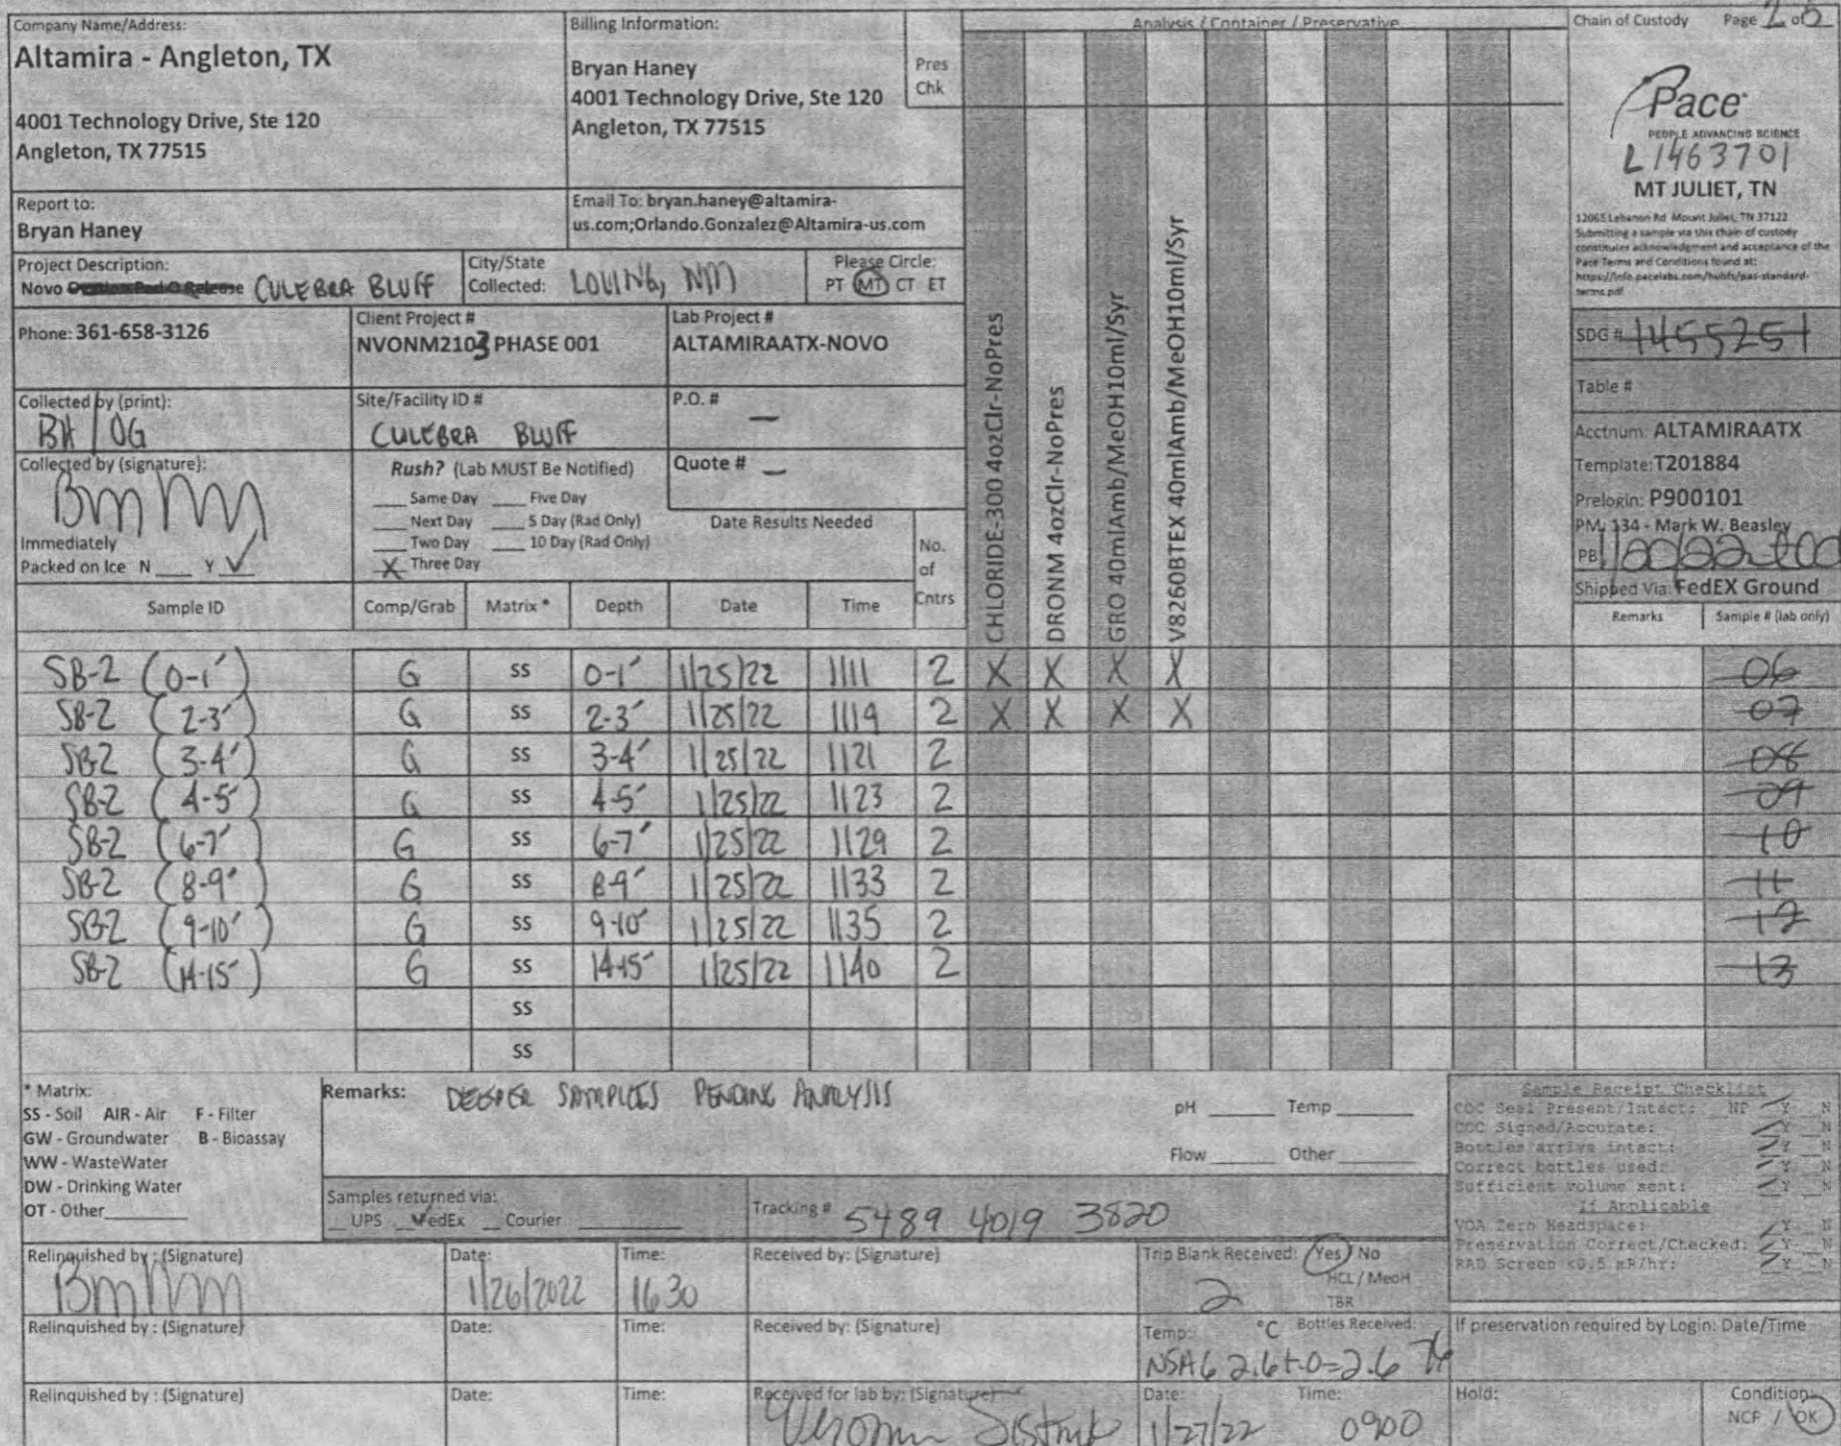 Company Name/Address:
Altamira - Angleton, TX
4001 Technology Drive, Ste 120
Angleton, TX 77515
Billing Information:
Bryan Haney
4001 Technology Drive, Ste 120
Angleton, TX 77515
Pres
Chk
Analysis / Container / Preservative
Chain of Custody Page 2 of
Pace
PEOPLE ADVANCING SCIENCE
L1463701
MT JULIET, TN
12065 Lebanon Rd Mount Juliet, TN 37122
Submitting a sample via this chain of custody
constitutes acknowledgment and acceptance of the
Pace Terms and Conditions found at:
https://info.pacelabs.com/hubfs/pas-standard-
terms.pdf
Report to:
Bryan Haney
Email To: bryan.haney@altamira-
us.com;Orlando.Gonzalez@Altamira-us.com
Project Description:
Novo CULEBRA BLUFF
City/State
Collected: LOVING, NM
Please Circle:
PT MT CT ET
Phone: 361-658-3126
Client Project #
NVONM2103 PHASE 001
Lab Project #
ALTAMIRAATX-NOVO
SDG # 1455251
Table #
Acctnum: ALTAMIRAATX
Template: T201884
Prelogin: P900101
PM: 134 - Mark W. Beasley
PB:
Shipped Via: FedEX Ground
Collected by (print):
BH / OG
Site/Facility ID #
CULEBRA BLUFF
P.O. #
—
Collected by (signature):
Immediately
Packed on Ice N ___ Y ✓
Rush? (Lab MUST Be Notified)
___ Same Day ___ Five Day
___ Next Day ___ 5 Day (Rad Only)
___ Two Day ___ 10 Day (Rad Only)
X Three Day
Quote # —
Date Results Needed
No.
of
Cntrs
CHLORIDE-300 4ozClr-NoPres
DRONM 4ozClr-NoPres
GRO 40mlAmb/MeOH10ml/Syr
V8260BTEX 40mlAmb/MeOH10ml/Syr
Sample ID Comp/Grab Matrix * Depth Date Time Remarks Sample # (lab only)
SB-2 (0-1') G SS 0-1' 1/25/22 1111 2 X X X X 06
SB-2 (2-3') G SS 2-3' 1/25/22 1119 2 X X X X 07
SB-2 (3-4') G SS 3-4' 1/25/22 1121 2 08
SB-2 (4-5') G SS 4-5' 1/25/22 1123 2 09
SB-2 (6-7') G SS 6-7' 1/25/22 1129 2 10
SB-2 (8-9') G SS 8-9' 1/25/22 1133 2 11
SB-2 (9-10') G SS 9-10' 1/25/22 1135 2 12
SB-2 (14-15') G SS 14-15' 1/25/22 1140 2 13
SS
SS
* Matrix:
SS - Soil AIR - Air F - Filter
GW - Groundwater B - Bioassay
WW - WasteWater
DW - Drinking Water
OT - Other
Remarks: DEEPER SAMPLES PENDING ANALYSIS
pH ___ Temp ___
Flow ___ Other ___
Samples returned via:
__ UPS ✓ FedEx __ Courier
Tracking # 5489 4019 3820
Sample Receipt Checklist
COC Seal Present/Intact: NP Y N
COC Signed/Accurate: Y N
Bottles arrive intact: Y N
Correct bottles used: Y N
Sufficient volume sent: Y N
If Applicable
VOA Zero Headspace: Y N
Preservation Correct/Checked: Y N
RAD Screen <0.5 mR/hr: Y N
Relinquished by : (Signature)
Date:
1/26/2022
Time:
1630
Received by: (Signature)
Trip Blank Received: Yes / No
2 HCL / MeoH
TBR
Relinquished by : (Signature)
Date:
Time:
Received by: (Signature)
Temp: °C Bottles Received:
NSA6 2.6+0=2.6
If preservation required by Login: Date/Time
Relinquished by : (Signature)
Date:
Time:
Received for lab by: (Signature)
Date:
1/27/22
Time:
0900
Hold:
Condition:
NCF / OK